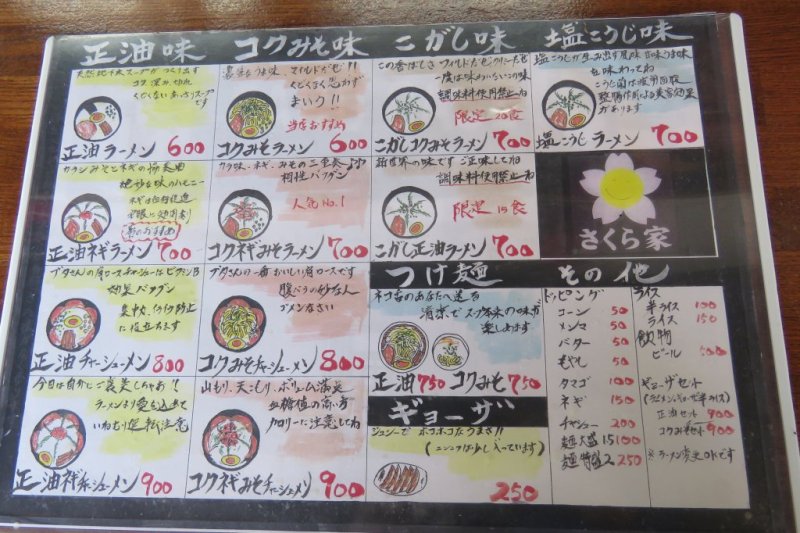 正油味
天然
スープが
コク、深み、切れ
くどくない あっさりスープ
です
正油ラーメン 600
カラシみそとネギの
絶妙な味のハーモニー
正油ネギラーメン 700
ブタさんの肩ロースチャーシューはビタミンB
効果バツグン
集中力、イライラ防止
に役立ちます
正油チャーシューメン 800
今日は自分にご褒美しちゃお!
ラーメンより愛を込めて
いねむり運転注意
正油ネギチャーシューメン 900
コクみそ味
マイルドだぜ!!
くどくなく 思わず
まいう!!
当店おすすめ
コクみそラーメン 600
カラ味、ネギ、みその三重奏
相性バツグン
人気No.1
コクネギみそラーメン 700
ブタさんの一番おいしい肩ロースです
腹ペコの
ゴメンなさい
コクみそチャーシューメン 800
山もり、天こもり、ボリューム満足
血糖値の高い方
カロリーに注意してね
コクネギみそチャーシューメン 900
こがし味
この香ばしさ ワイルドだぜ
一度は味わいたいこの味
調味料使用禁止ね
限定 20食
こがしコクみそラーメン 700
新世界の味です ご正味してね
調味料使用禁止ね
限定 15食
こがし正油ラーメン 700
塩こうじ味
塩こうじが生み出す
味わってね
こうじ菌は疲労回復
整腸作用による美容効果
があります
塩こうじラーメン 700
さくら家
つけ麺
ネコ舌のあなたへ送る
清涼でスープ本来の味が
楽しめます
正油 750 コクみそ 750
ギョーザ
ジューシーで ホコホコだ うまさ!!
(ニンニクは少し入っています)
250
その他
トッピング
コーン 50
メンマ 50
バター 50
もやし 50
タマゴ 100
ネギ 150
チャシュー 200
麺大盛 1.5 100
麺特盛 2 250
ライス
半ライス 100
ライス 150
飲物
ビール 500
ギョーザセット
(ラーメン+ギョーザ+半ライス)
正油セット 900
コクみそセット 900
※ラーメン変更OKです